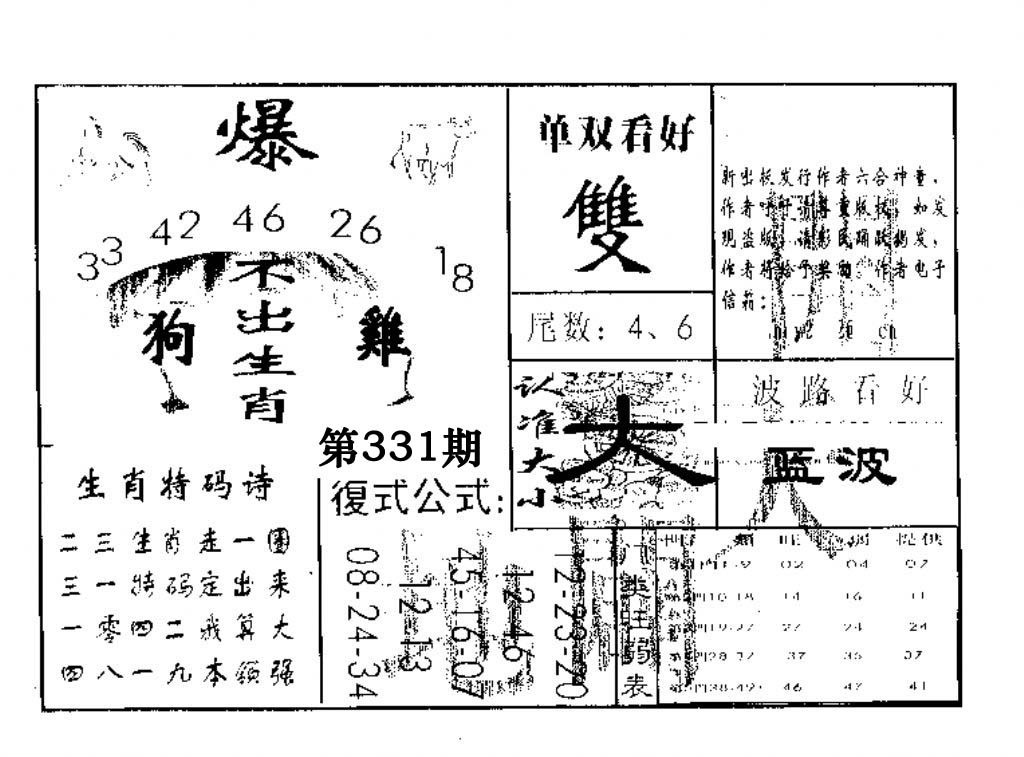 爆
33 42 46 26 18
不出生肖
狗
雞
第331期
生肖特码诗
二三生肖走一團
三一特码定出来
一零四二我算大
四八一九本领强
復式公式:
08-24-34
12-13
45-16-07
12-46
12-23-20
单双看好
雙
尾数：4、6
认准大小
大
新出板发行作者六合神童,
作者呼吁请尊重版权,如发
现盗版,请彩民踊跃揭发,
作者将给予奖励,作者电子
信箱:
波路看好
蓝波
门类旺弱表
提供
02 04 07
14 16 11
27 24 24
37 35 37
46 47 41